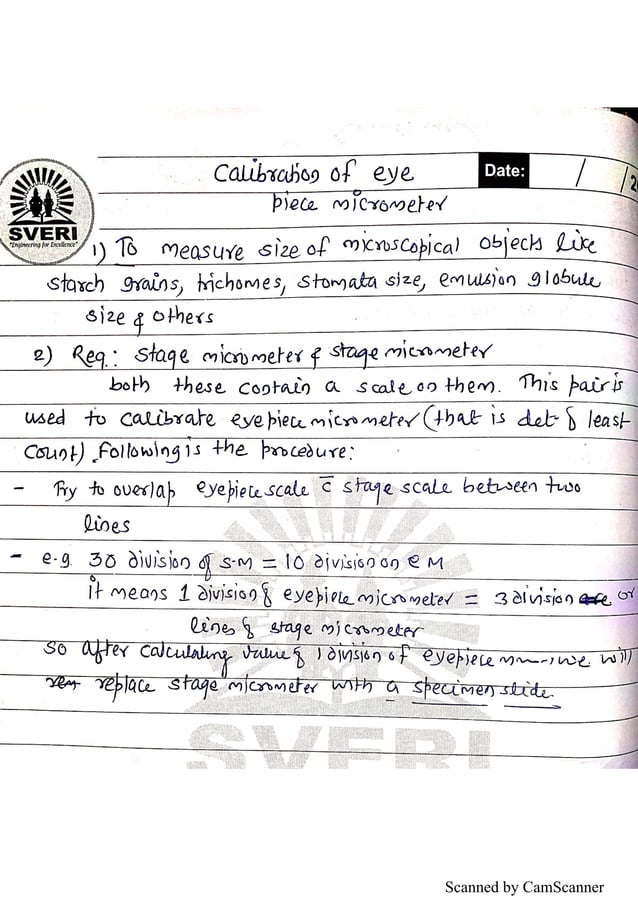 Calibration of eye
Date: / /2
piece micrometer
SVERI
"Engineering for Excellence"
1) To measure size of microscopical objects like
starch grains, trichomes, stomata size, emulsion globule
size & others
2) Req.: stage micrometer & stage micrometer
both these contain a scale on them. This pair is
used to calibrate eyepiece micrometer (that is det of least
count). Following is the procedure:
- Try to overlap eyepiece scale c̄ stage scale between two
lines
- e.g. 30 division of S.M = 10 division on e M
it means 1 division of eyepiece micrometer = 3 division or
lines of stage micrometer
so after calculating value of 1 division of eyepiece we will
replace stage micrometer with a specimen slide.
SVERI
Scanned by CamScanner